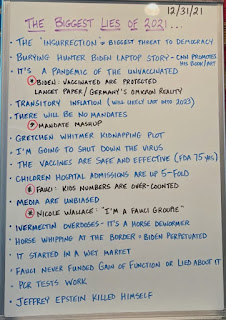 12/31/21
THE BIGGEST LIES OF 2021...
• THE "INSURRECTION" = BIGGEST THREAT TO DEMOCRACY
• BURYING HUNTER BIDEN LAPTOP STORY - CNN PROMOTES HIS BOOK/ART
• IT'S A PANDEMIC OF THE UNVACCINATED
BIDEN: VACCINATED ARE PROTECTED
LANCET PAPER/GERMANY'S OMICRON REALITY
• TRANSITORY INFLATION (WILL LIKELY LAST INTO 2023)
• THERE WILL BE NO MANDATES
MANDATE MASHUP
• GRETCHEN WHITMER KIDNAPPING PLOT
• I'M GOING TO SHUT DOWN THE VIRUS
• THE VACCINES ARE SAFE AND EFFECTIVE (FDA 75 YRS)
• CHILDREN HOSPITAL ADMISSIONS ARE UP 5-FOLD
FAUCI: KIDS NUMBERS ARE OVER-COUNTED
• MEDIA ARE UNBIASED
NICOLE WALLACE: "I'M A FAUCI GROUPIE"
• IVERMECTIN OVERDOSES - IT'S A HORSE DEWORMER
• HORSE WHIPPING AT THE BORDER - BIDEN PERPETUATED
• IT STARTED IN A WET MARKET
• FAUCI NEVER FUNDED GAIN OF FUNCTION OR LIED ABOUT IT
• PCR TESTS WORK
• JEFFREY EPSTEIN KILLED HIMSELF